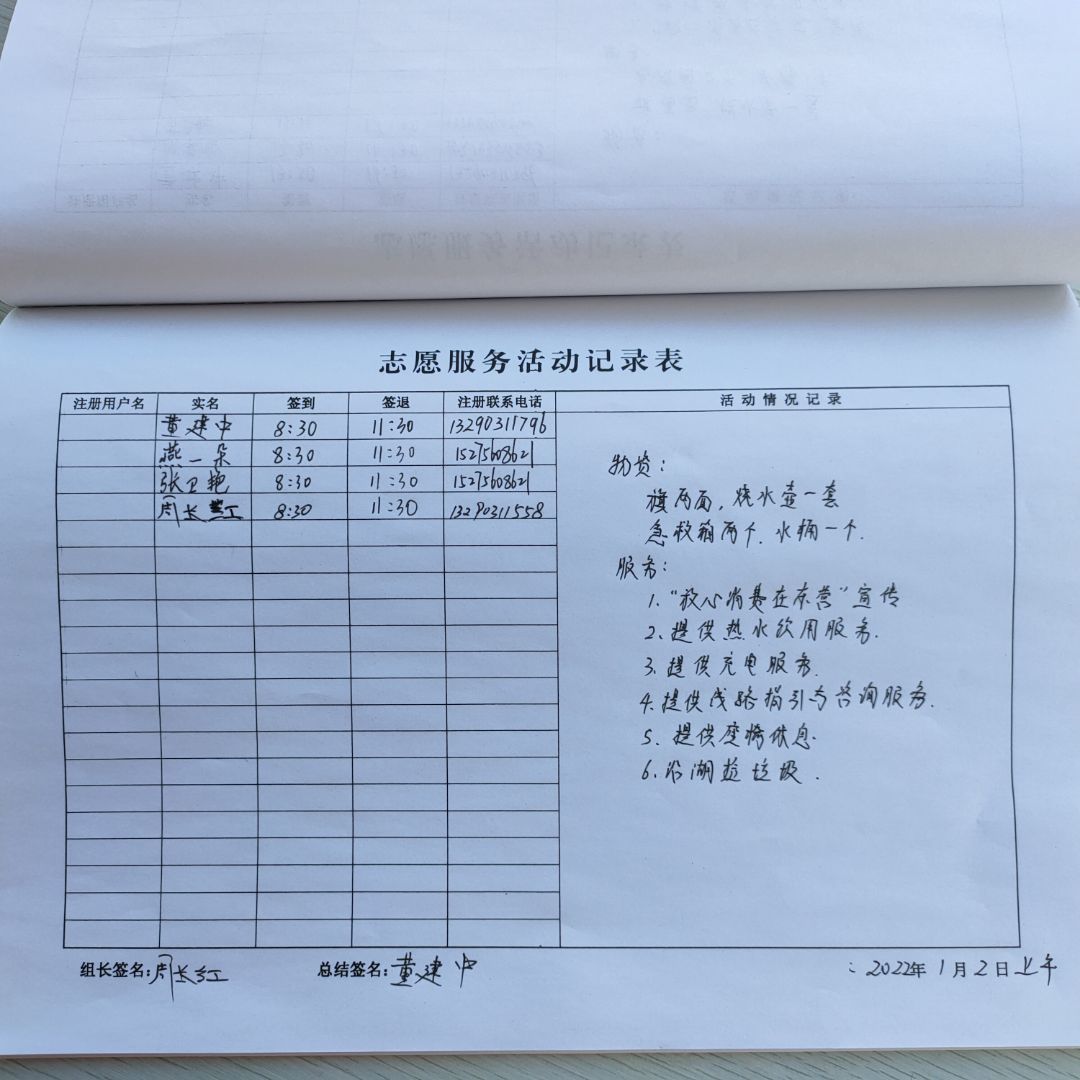 志愿服务活动记录表
注册用户名 实名 签到 签退 注册联系电话 活动情况记录
董建中 8:30 11:30 13290311796
燕一朵 8:30 11:30 15275608621
张卫艳 8:30 11:30 15275608621
周长红 8:30 11:30 13290311558
物资:
旗两面,烧水壶一套
急救箱两个.水桶一个.
服务:
1."放心消费在东营"宣传
2.提供热水饮用服务.
3.提供充电服务.
4.提供线路指引与咨询服务.
5.提供应聘信息.
6.沿湖捡垃圾.
组长签名:周长红 总结签名:董建中 :2022年1月2日上午